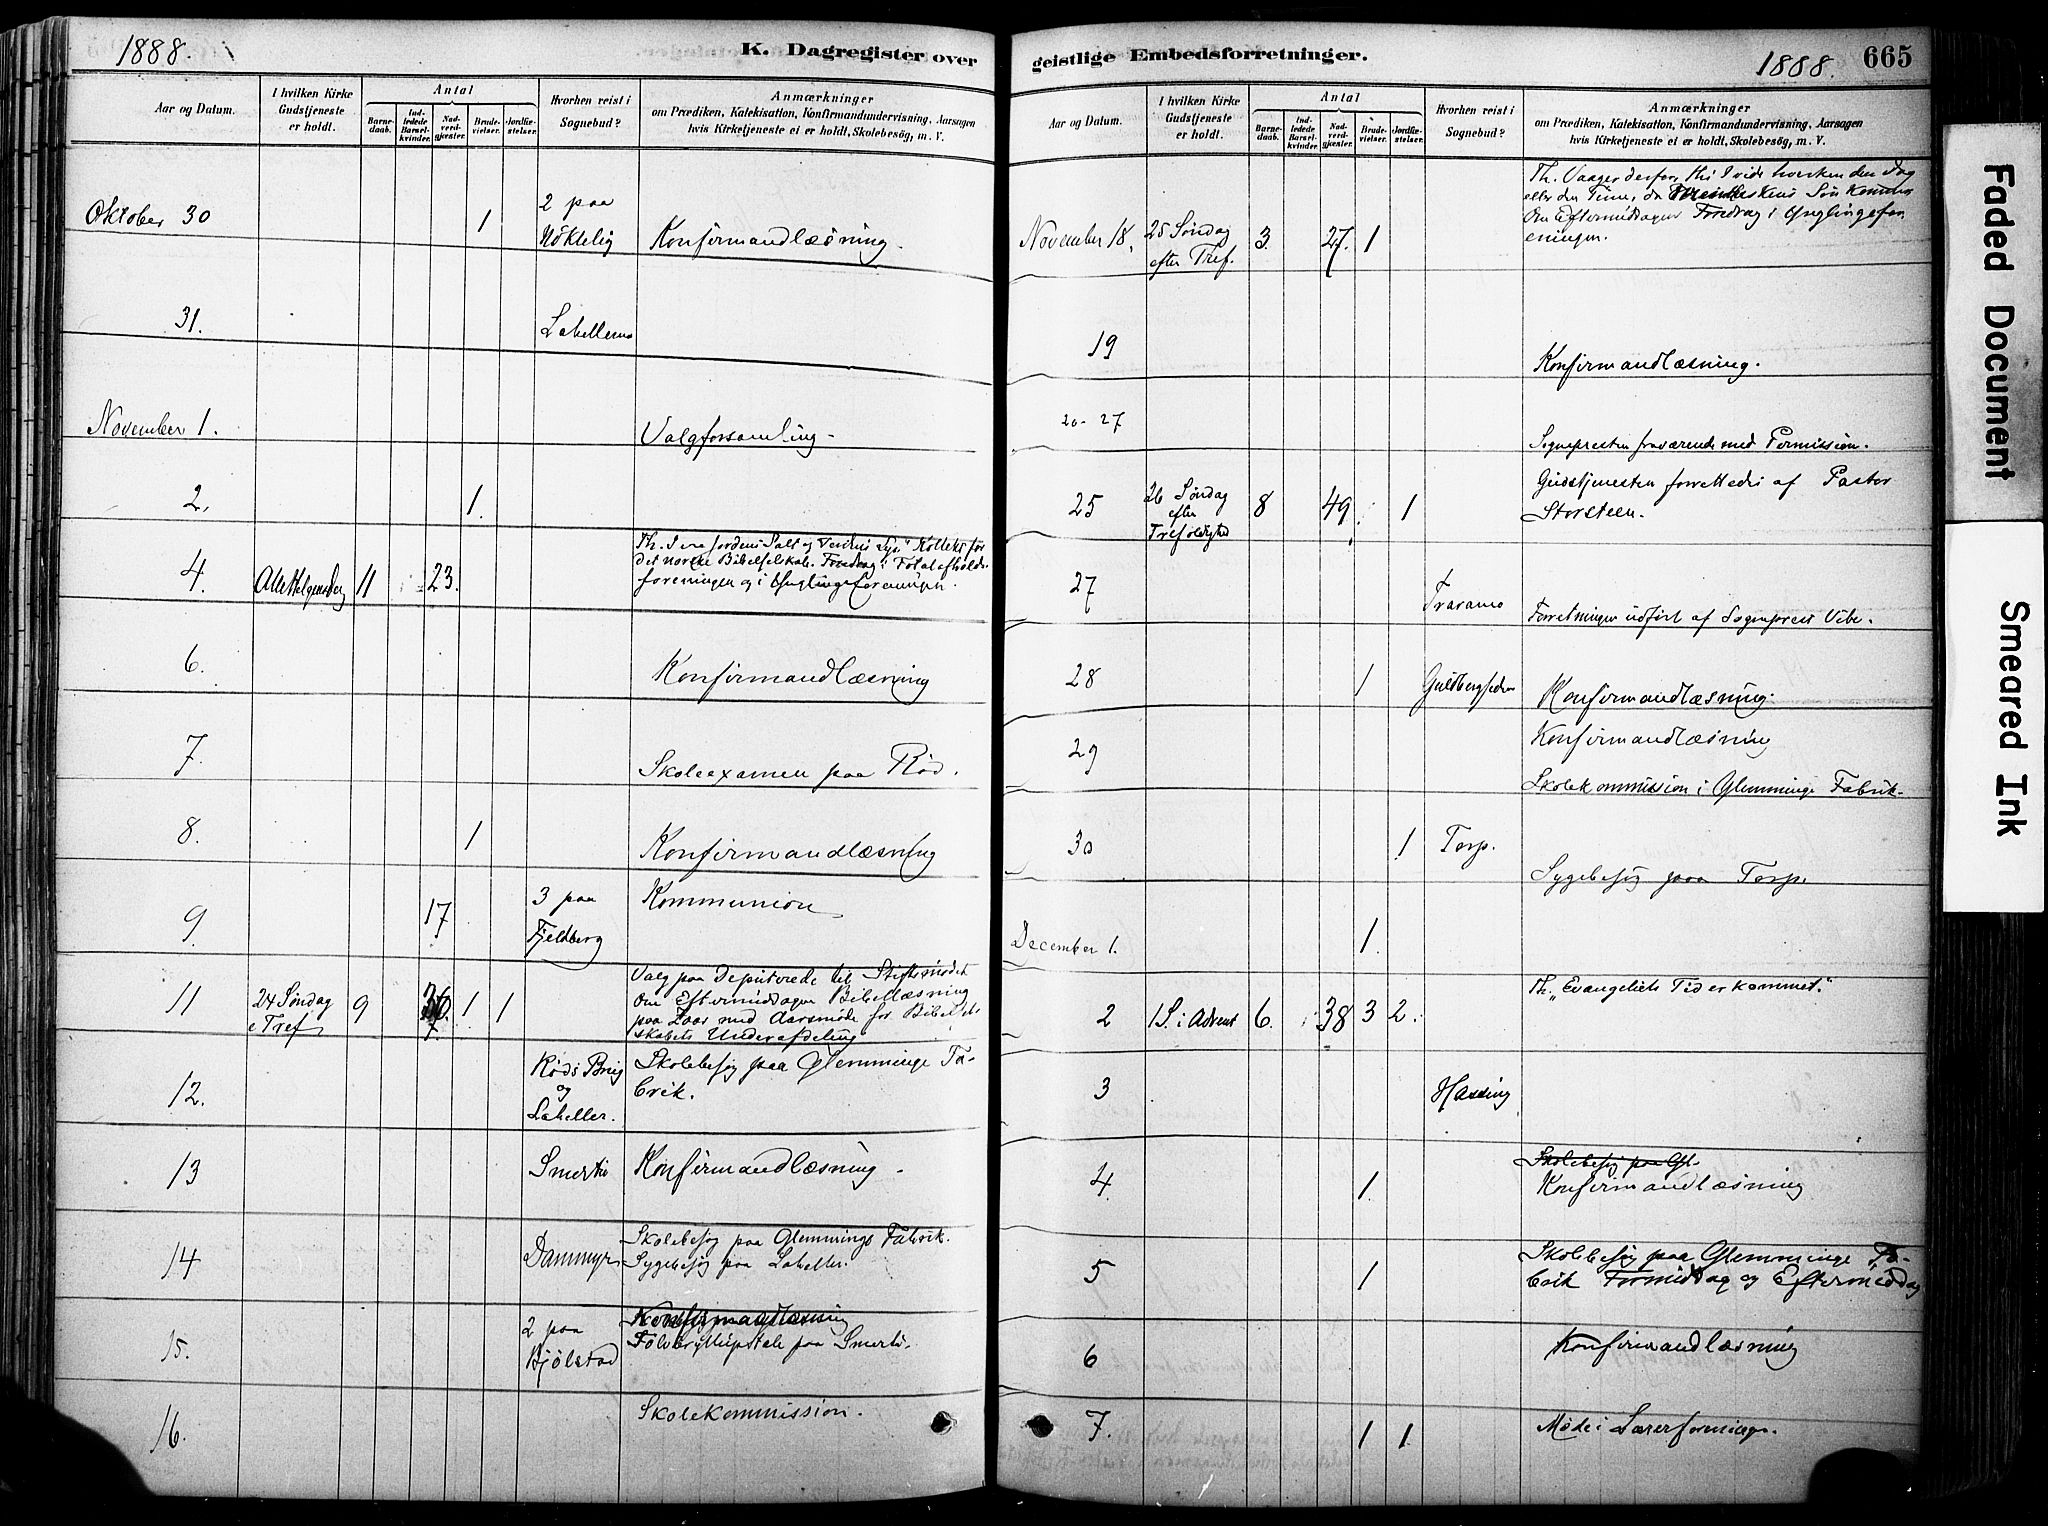 1888.
K. Dagregister over
Aar og Datum.
I hvilken Kirke
Gudstjeneste
er holdt.
Antal
Barne-
daab.
Ind-
ledede
Barsel-
kvinder.
Nad-
verd-
gjester.
Brude-
vielser.
Jordfæ-
stelser.
Hvorhen reist i
Sognebud?
Anmærkninger
om Prædiken, Katekisation, Konfirmandundervisning, Aarsagen
hvis Kirketjeneste ei er holdt, Skolebesög, m. V.
Oktober 30 1 2 paa
Nöklelig Konfirmandlæsning.
31.
November 1. Valgforsamling
2. 1
4. Alle Helgensdag 11 23. Th. I ere Jordens Salt og Verdens Lys" Kollekt for
det norske Bibelselskab. Foredrag i Totalafholds
foreningen og i Ynglingeforeningen.
6. Konfirmandlæsning
7. Skoleexamen paa Röd.
8. 1 Konfirmandlæsning
9 17 3 paa
Fjeldberg Kommunion
11 24 Söndag
e Tref 9 1 1 Valg paa Deputerede til Stiftsmödet
Om Eftermiddagen Bibellæsning
paa med Aarsmöde for Bibelsel
skabets Underafdeling
12. Röds Brug
og
Labeller. Skolebesög paa Glemminge Fa-
brik.
13 Smertu Konfirmandlæsning
14 Dammyr Skolebesög paa Glemminge Fabrik.
Sygebesög paa Labeller.
15. 2 paa
Bjölstad Konfirmandlæsning
paa Smertu.
16. Skolekommission.
geistlige Embedsforretninger.
1888. 665
Aar og Datum.
I hvilken Kirke
Gudstjeneste
er holdt.
Antal
Barne-
daab.
Ind-
ledede
Barsel-
kvinder.
Nad-
verd-
gjester.
Brude-
vielser.
Jordfæ-
stelser.
Hvorhen reist i
Sognebud?
Anmærkninger
om Prædiken, Katekisation, Konfirmandundervisning, Aarsagen
hvis Kirketjeneste ei er holdt, Skolebesög, m. V.
November 18. 25 Söndag
efter Tref. 3. 27. 1 Th. Vaager derfor, thi I vide hverken den Dag
eller den Time, da Menneskens Sön kommer
Om Eftermiddagen Foredrag i Ynglingefor
eningen.
19 Konfirmandlæsning.
20-27 Sognepresten fraværende med Permission.
25 26 Söndag
efter
Trefoldighed 8 49. 1 Gudstjenesten forrettedes af Pastor
Storsteen.
27 Traramo Forretninger udfört af Sogneprest Vibe.
28 1 Konfirmandlæsning.
29 Konfirmandlæsning
Skolekommission i Glemminge Fabrik.
30 1 Torp. Sygebesög paa Torp.
December 1. 1.
2 1 S. i Advent 6. 38 3 2. Th. „Evangeliets Tid er kommet."
3 Hassing
4. 1. Skolebesög paa Gl.
Konfirmandlæsning
5 1 Skolebesög paa Glemminge Fa-
brik Formiddag og Eftermiddag
6 Konfirmandlæsning
7. 1 1 Möde i Lærerforeninge.
Faded Document
Smeared Ink